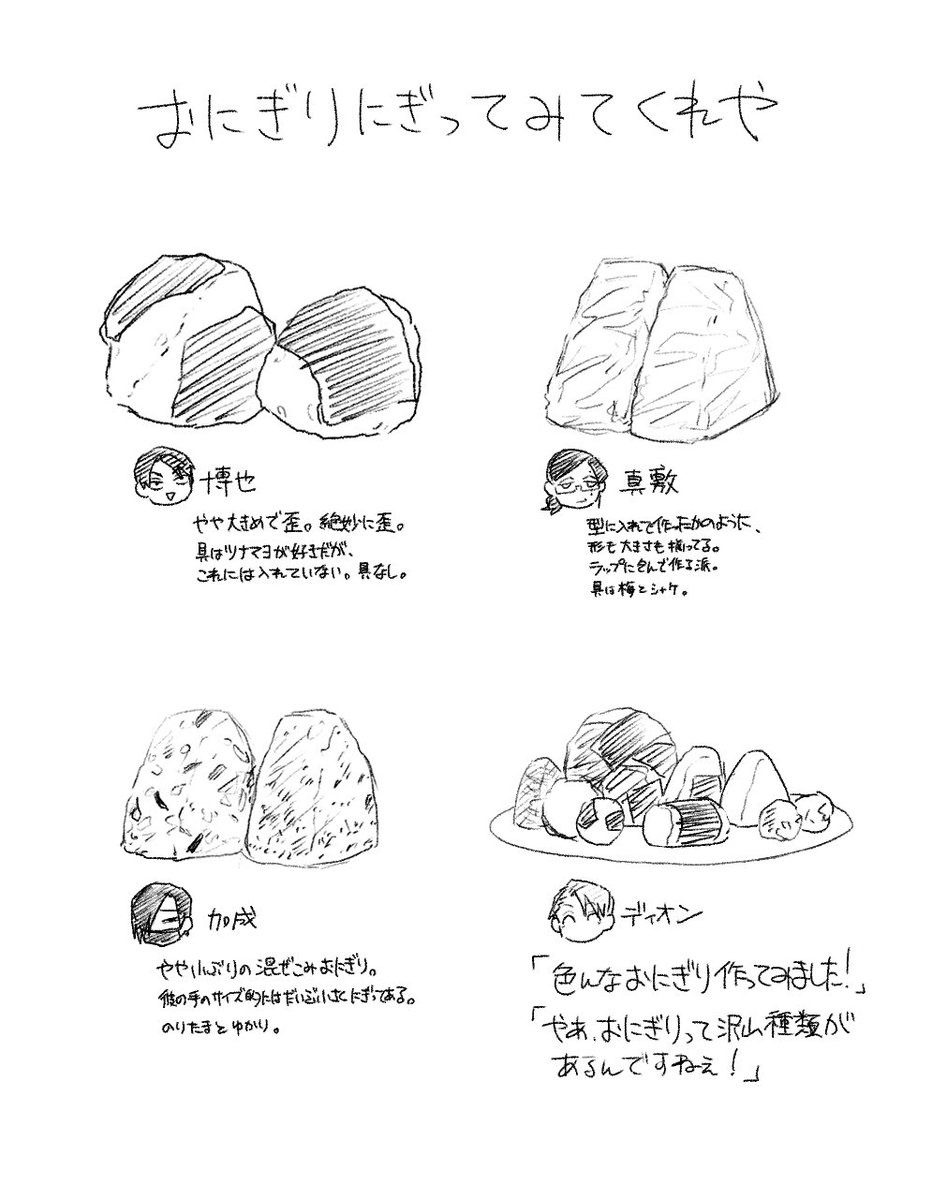 おにぎりにぎってみてくれや
博也
やや大きめで歪。絶妙に歪。
具はツナマヨが好きだが、
これには入れていない。具なし。
真敷
型に入れて作ったかのように、
形も大きさも揃ってる。
ラップに包んで作る派。
具は梅とシャケ。
加成
やや小ぶりの混ぜこみおにぎり。
彼の手のサイズ的にはだいぶ小さくにぎってある。
のりたまとゆかり。
ディオン
「色んなおにぎり作ってみました!」
「やあ、おにぎりって沢山種類が
あるんですねぇ!」